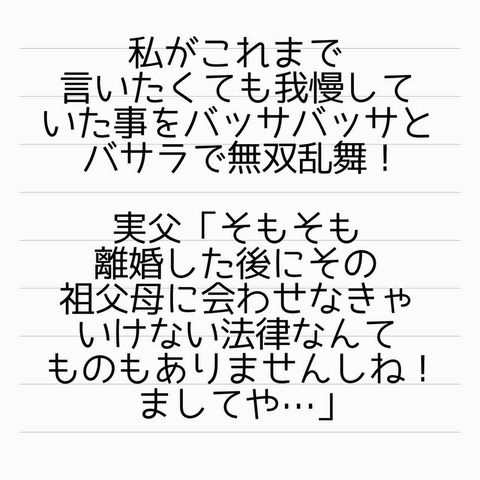 私がこれまで
言いたくても我慢して
いた事をバッサバッサと
バサラで無双乱舞！
実父「そもそも
離婚した後にその
祖父母に会わせなきゃ
いけない法律なんて
ものもありませんしね！
ましてや…」